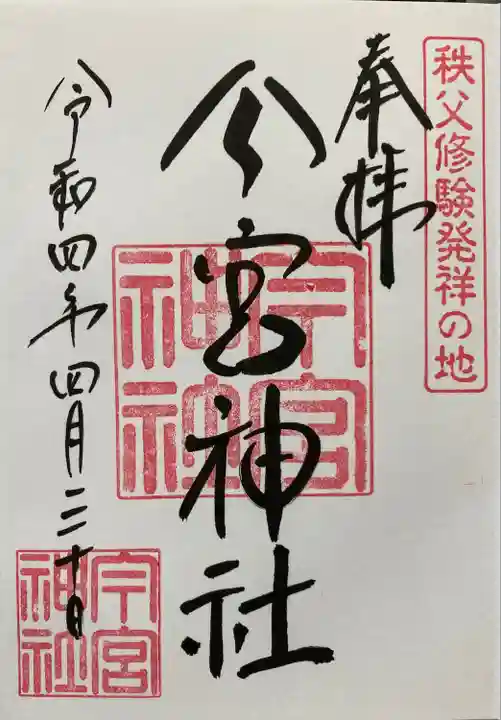 秩父修験発祥の地
奉拝
今宮神社
今宮神社
令和四年四月二十日
今宮神社